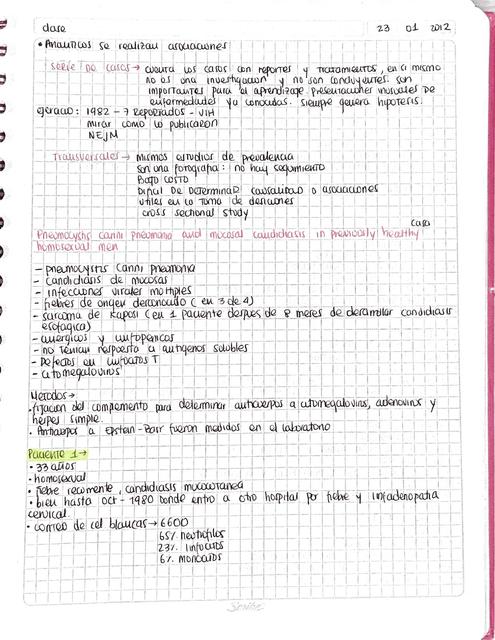 clase 23 01 2012
• Analiticos se realizan asociaciones
Serie De casos → cuenta los casos con reportes y tratamientos, en si mismo
no es una investigacion y no son concluyentes. son
importantes para el aprendizaje. presentaciones inusuales de
enfermedades ya conocidas. siempre genera hipotesis.
ejercicio: 1982 - 7 Reportados - VIH
mirar como lo publicaron
NEJM
Transversales → mismos estudios de prevalencia
son una fotografia: no hay seguimiento
Bajo costo
Dificil de determinar causalidad o asociaciones
utiles en la toma de decisiones
cross sectional study
caso
Pneumocystis carinii pneumonia and mucosal candidiasis in previously healthy
homosexual men
- pneumocystis carinii pneumonia
- candidiasis de mucosas
- infecciones virales multiples
- fiebres de origen desconocido (en 3 de 4)
- sarcoma de Kaposi (en 1 paciente despues de 8 meses de desarrollar candidiasis
esofagica)
- anergicos y linfopenicos
- no tenian respuesta a antigenos solubles
- Defectos en linfocitos T
- citomegalovirus
Metodos →
• fijacion del complemento para determinar anticuerpos a citomegalovirus, adenovirus y
herpes simple.
• Anticuerpos a Epstein-Barr fueron medidos en el laboratorio
Paciente 1 →
• 33 años
• homosexual
• fiebre recurrente, candidiasis mucocutanea
• bien hasta oct - 1980 donde entro a otro hospital por fiebre y linfadenopatia
cervical.
• conteo de cel blancas → 6600
65% neutrofilos
23% linfocitos
6% monocitos
Scribe